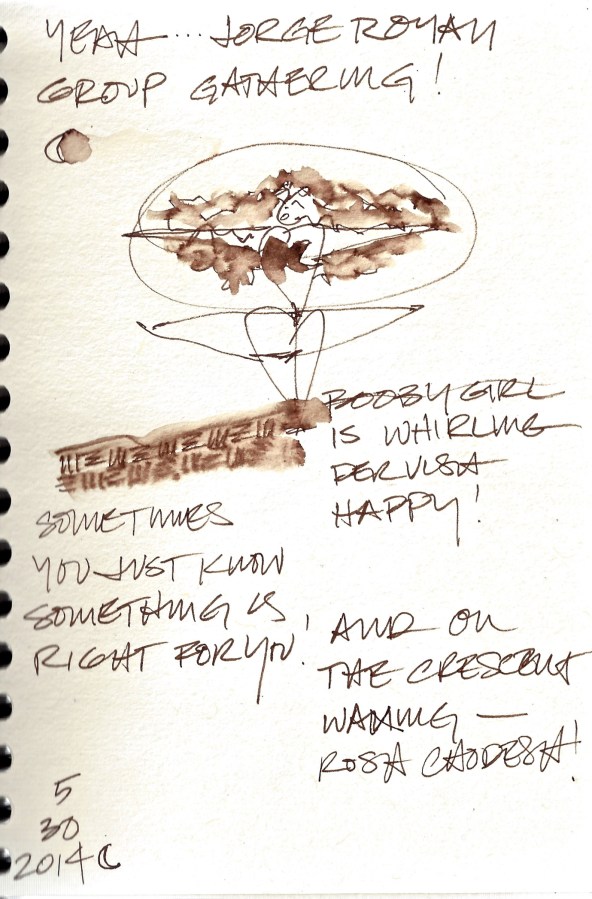 YEAH ... JORGE ROYAN
GROUP GATHERING!
BOOBY GIRL
IS WHIRLING
DERVISH
HAPPY!
SOMETIMES
YOU JUST KNOW
SOMETHING IS
RIGHT FOR YOU!
AND ON
THE CRESCENT
WANING —
ROSH CHODESH!
5
30
2014